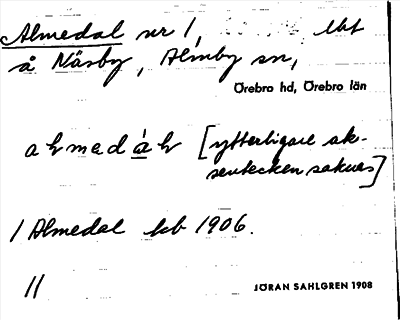 Almedal nr 1, lht
å Näsby, Almby sn,
Örebro hd, Örebro län
almedál [ytterligare ak-
sentecken saknas]
1 Almedal kb 1906.
11
JÖRAN SAHLGREN 1908